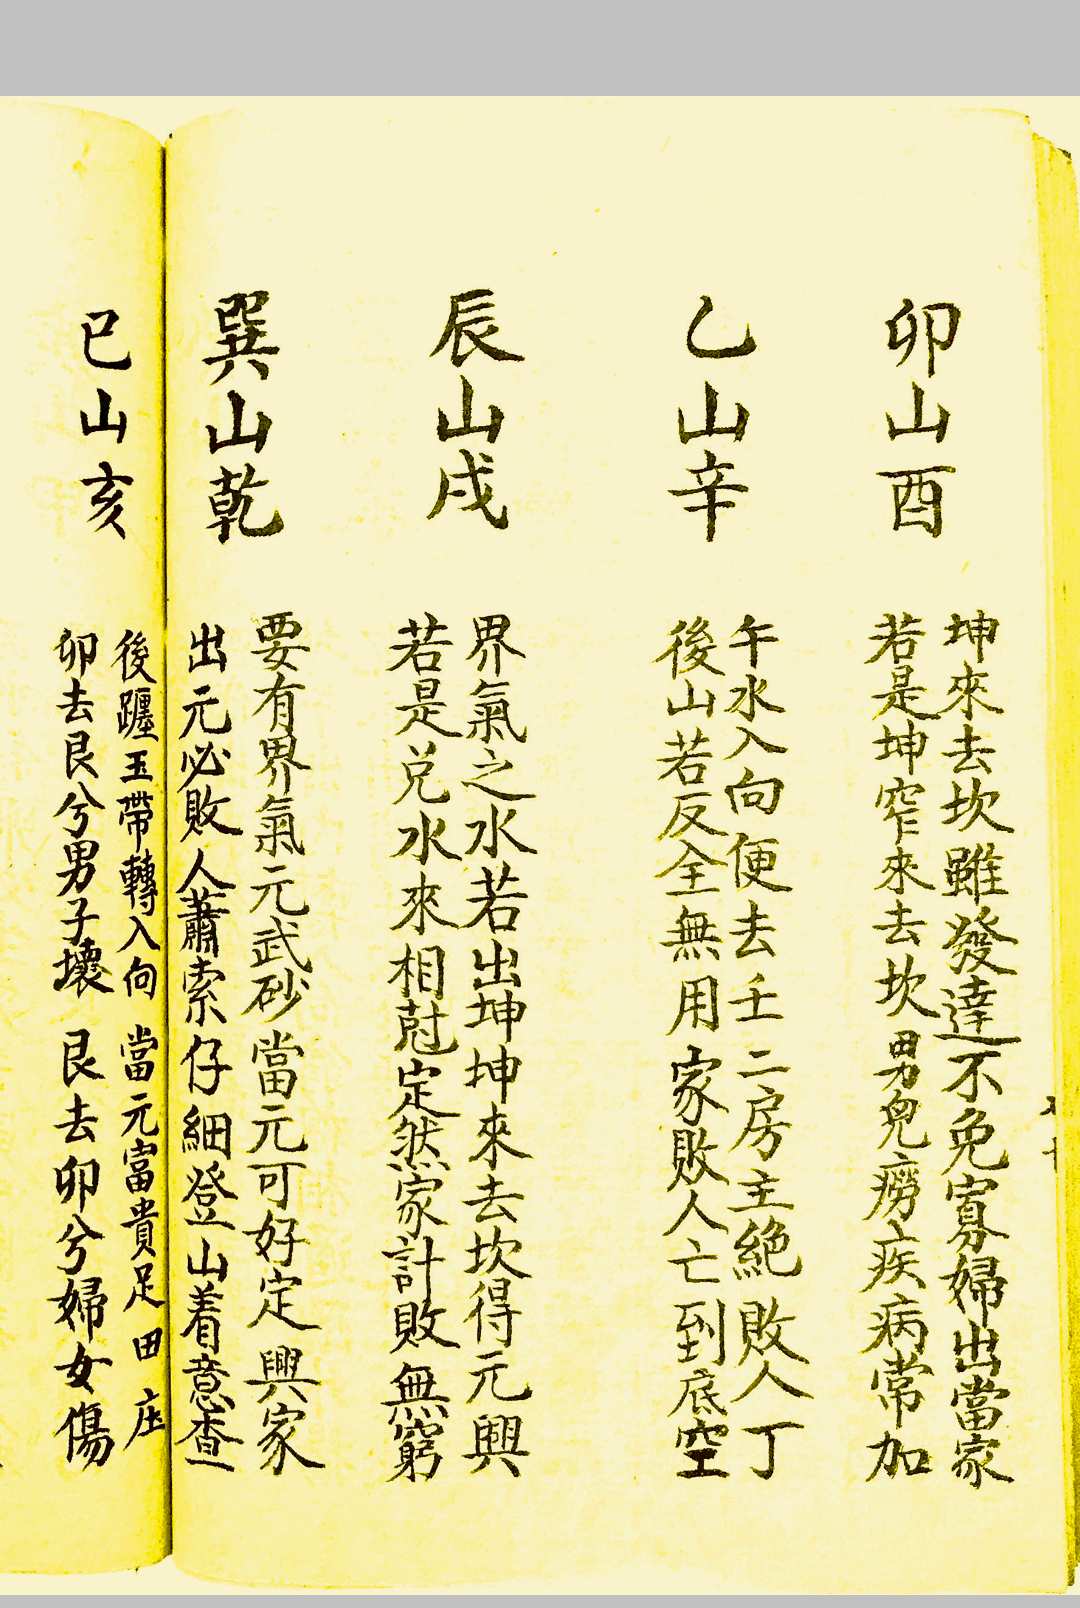 卯山酉
坤來去坎雖發達不免寡婦出當家
若是坤窄來去坎男兒癆疾病常加
乙山辛
午水入向便去壬二房主絕敗人丁
後山若反全無用家敗人亡到底空
辰山戌
界氣之水若出坤坤來去坎得元興
若是兌水來相尅定然家計敗無窮
巽山乾
要有界氣元武砂當元可好定興家
出元必敗人蕭索仔細登山着意查
巳山亥
後躔玉帶轉入向當元富貴足田庄
卯去艮兮男子壞艮去卯兮婦女傷